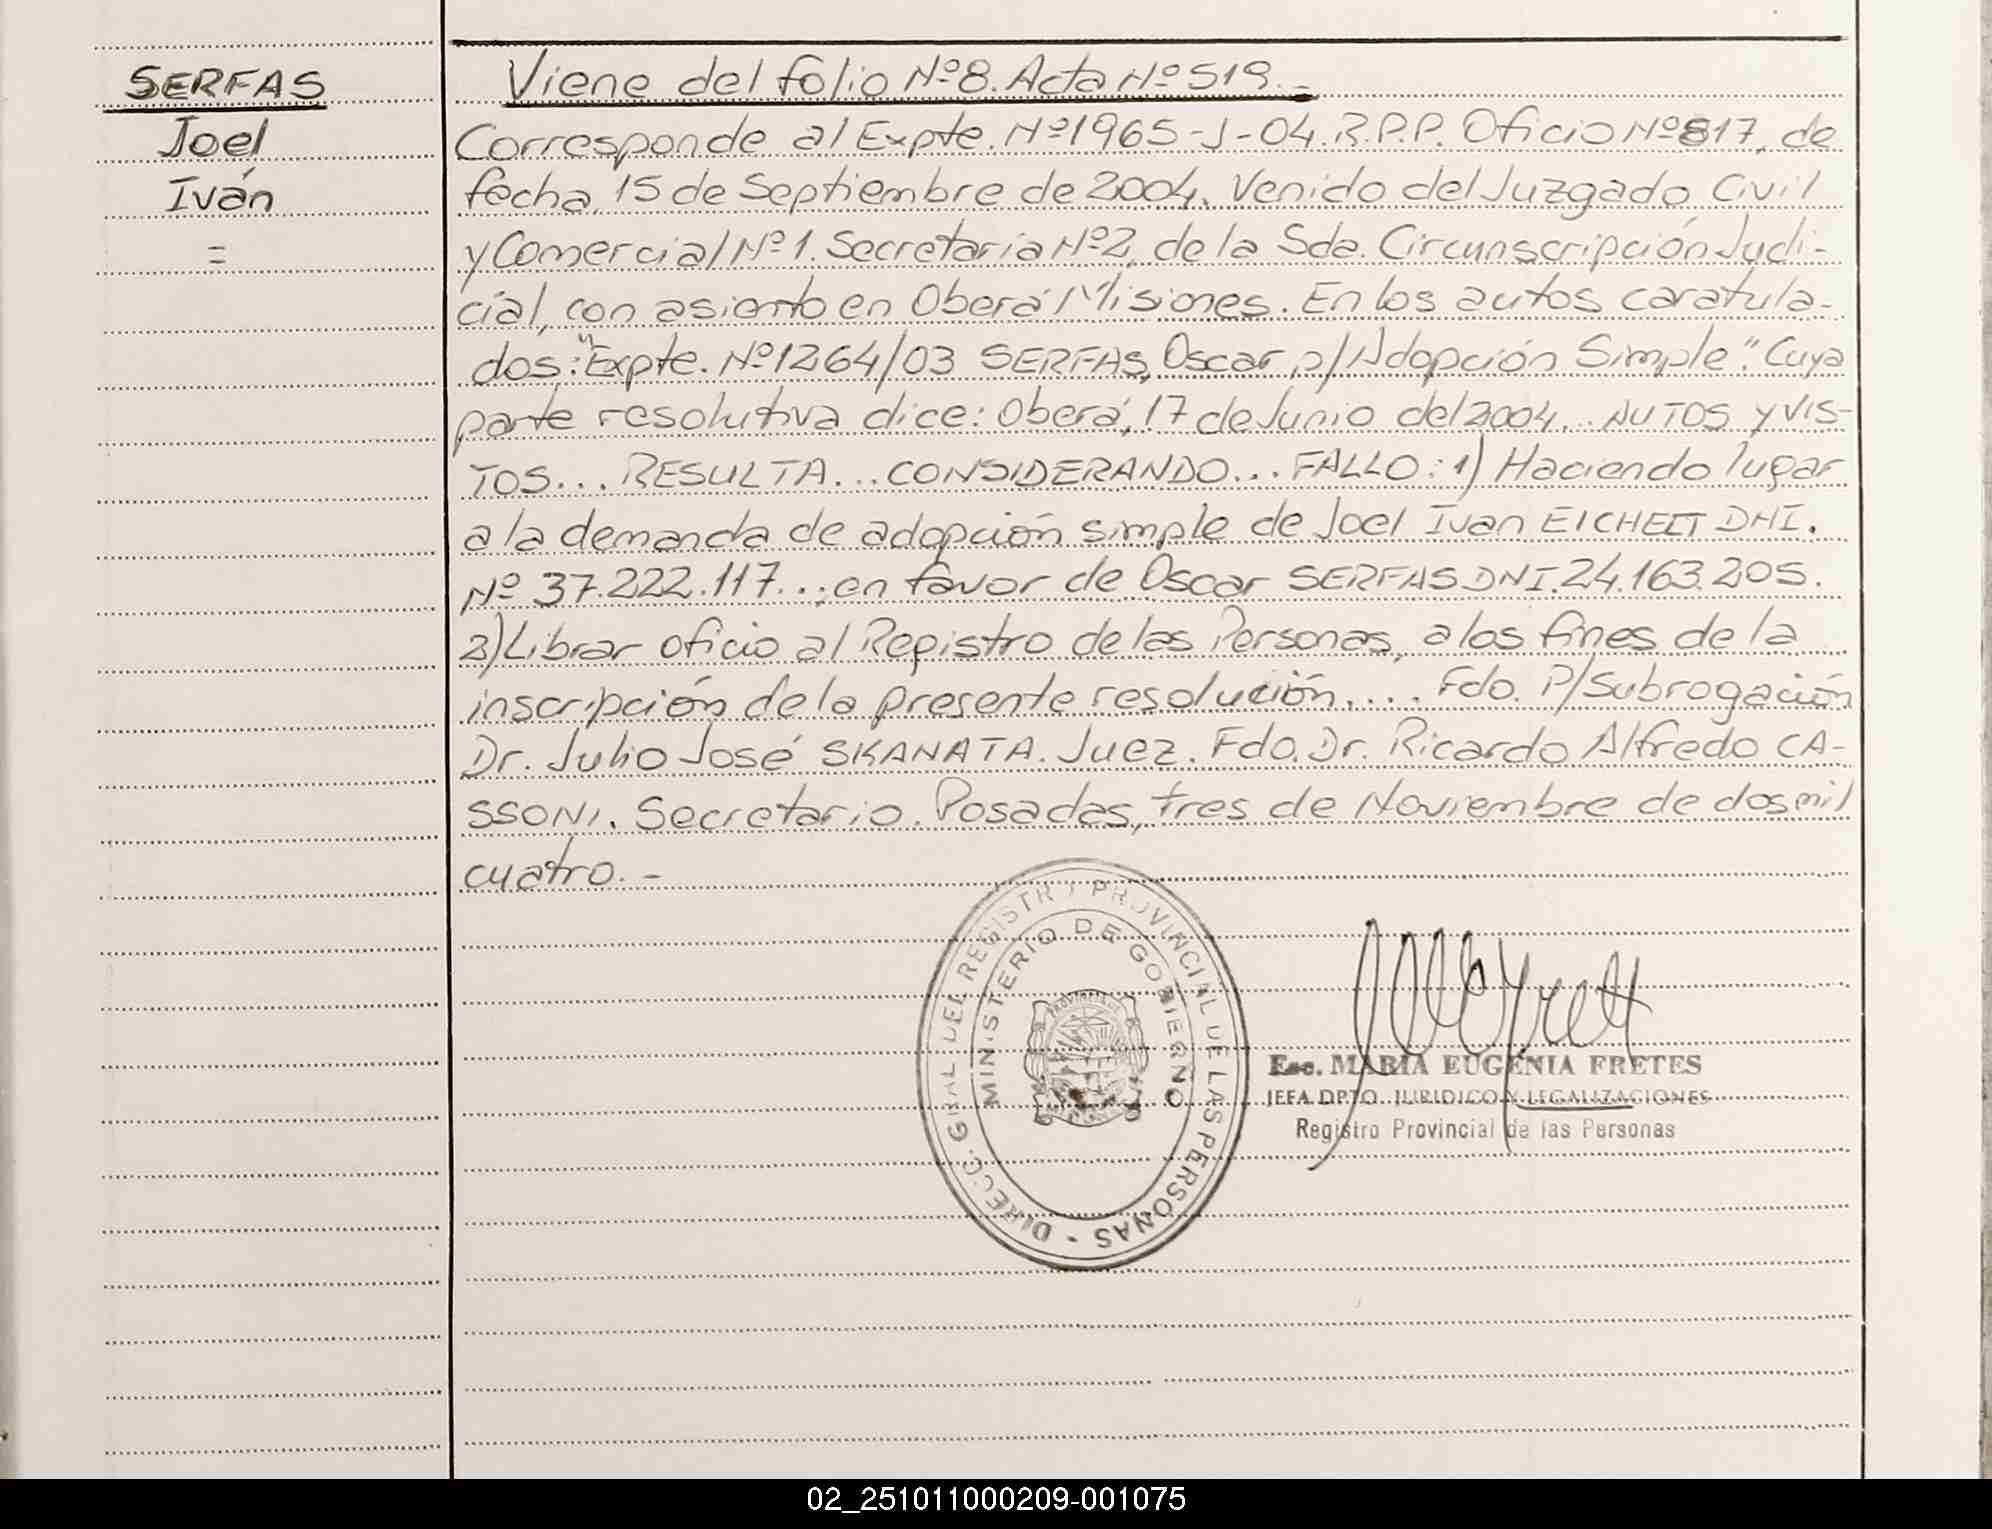 SERFAS
Joel
Iván
=
Viene del folio Nº8. Acta Nº519.-
Corresponde al Expte. Nº1965-J-04.R.P.P. Oficio Nº817, de
fecha, 15 de Septiembre de 2004. Venido del Juzgado Civil
y Comercial Nº1. Secretaría Nº2, de la Sda. Circunscripción Judi-
cial, con asiento en Oberá Misiones. En los autos caratula-
dos: "Expte. Nº1264/03 SERFAS, Oscar p/Adopción Simple". Cuya
parte resolutiva dice: Oberá, 17 de Junio del 2004... AUTOS y VIS-
TOS... RESULTA... CONSIDERANDO... FALLO: 1) Haciendo lugar
a la demanda de adopción simple de Joel Ivan EICHELT DNI.
Nº 37.222.117...; en favor de Oscar SERFAS DNI. 24.163.205.
2) Librar oficio al Registro de las Personas, a los fines de la
inscripción de la presente resolución.... Fdo. P/Subrogación
Dr. Julio José SKANATA. Juez. Fdo. Dr. Ricardo Alfredo CA-
SSONI. Secretario. Posadas, tres de Noviembre de dos mil
cuatro.-
DIRECC. GRAL DEL REGISTRO PROVINCIAL DE LAS PERSONAS -
MINISTERIO DE GOBIERNO
Esc. MARIA EUGENIA FRETES
JEFA DPTO. JURIDICO Y LEGALIZACIONES
Registro Provincial de las Personas
02_251011000209-001075